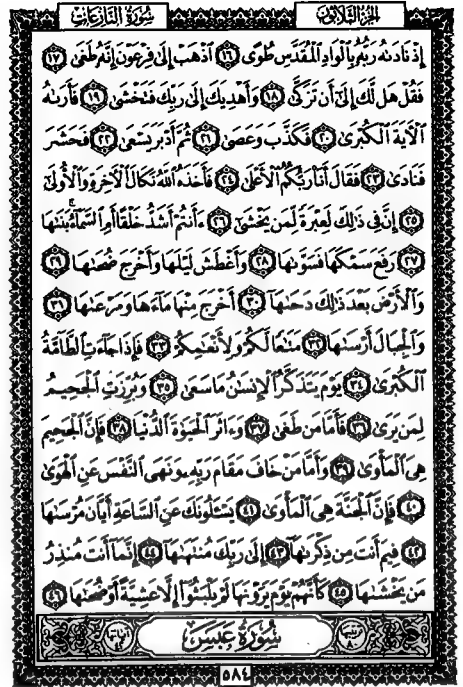 سُورَةُ النَّازِعَاتِ الجُزْءُ الثَّلَاثُونَ
إِذْ نَادَىٰهُ رَبُّهُۥ بِٱلْوَادِ ٱلْمُقَدَّسِ طُوًى ١٦ ٱذْهَبْ إِلَىٰ فِرْعَوْنَ إِنَّهُۥ طَغَىٰ ١٧
فَقُلْ هَل لَّكَ إِلَىٰٓ أَن تَزَكَّىٰ ١٨ وَأَهْدِيَكَ إِلَىٰ رَبِّكَ فَتَخْشَىٰ ١٩ فَأَرَىٰهُ
ٱلْءَايَةَ ٱلْكُبْرَىٰ ٢٠ فَكَذَّبَ وَعَصَىٰ ٢١ ثُمَّ أَدْبَرَ يَسْعَىٰ ٢٢ فَحَشَرَ
فَنَادَىٰ ٢٣ فَقَالَ أَنَا۠ رَبُّكُمُ ٱلْأَعْلَىٰ ٢٤ فَأَخَذَهُ ٱللَّهُ نَكَالَ ٱلْءَاخِرَةِ وَٱلْأُولَىٰٓ
٢٥ إِنَّ فِى ذَٰلِكَ لَعِبْرَةً لِّمَن يَخْشَىٰٓ ٢٦ ءَأَنتُمْ أَشَدُّ خَلْقًا أَمِ ٱلسَّمَآءُ ۚ بَنَىٰهَا
٢٧ رَفَعَ سَمْكَهَا فَسَوَّىٰهَا ٢٨ وَأَغْطَشَ لَيْلَهَا وَأَخْرَجَ ضُحَىٰهَا ٢٩
وَٱلْأَرْضَ بَعْدَ ذَٰلِكَ دَحَىٰهَآ ٣٠ أَخْرَجَ مِنْهَا مَآءَهَا وَمَرْعَىٰهَا ٣١
وَٱلْجِبَالَ أَرْسَىٰهَا ٣٢ مَتَٰعًا لَّكُمْ وَلِأَنْعَٰمِكُمْ ٣٣ فَإِذَا جَآءَتِ ٱلطَّآمَّةُ
ٱلْكُبْرَىٰ ٣٤ يَوْمَ يَتَذَكَّرُ ٱلْإِنسَٰنُ مَا سَعَىٰ ٣٥ وَبُرِّزَتِ ٱلْجَحِيمُ
لِمَن يَرَىٰ ٣٦ فَأَمَّا مَن طَغَىٰ ٣٧ وَءَاثَرَ ٱلْحَيَوٰةَ ٱلدُّنْيَا ٣٨ فَإِنَّ ٱلْجَحِيمَ
هِىَ ٱلْمَأْوَىٰ ٣٩ وَأَمَّا مَنْ خَافَ مَقَامَ رَبِّهِۦ وَنَهَى ٱلنَّفْسَ عَنِ ٱلْهَوَىٰ
٤٠ فَإِنَّ ٱلْجَنَّةَ هِىَ ٱلْمَأْوَىٰ ٤١ يَسْـَٔلُونَكَ عَنِ ٱلسَّاعَةِ أَيَّانَ مُرْسَىٰهَا
٤٢ فِيمَ أَنتَ مِن ذِكْرَىٰهَآ ٤٣ إِلَىٰ رَبِّكَ مُنتَهَىٰهَآ ٤٤ إِنَّمَآ أَنتَ مُنذِرُ
مَن يَخْشَىٰهَا ٤٥ كَأَنَّهُمْ يَوْمَ يَرَوْنَهَا لَمْ يَلْبَثُوٓا۟ إِلَّا عَشِيَّةً أَوْ ضُحَىٰهَا ٤٦
سُورَةُ عَبَسَ
٥٨٤